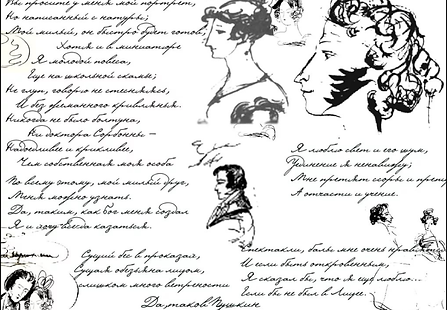 Вы просите у меня мой портрет,
Но написанный с натуры;
Мой милый, он быстро будет готов,
Хотя и в миниатюре.
Я молодой повеса,
Еще на школьной скамье;
Не глуп, говорю не стесняясь,
И без жеманного кривлянья.
Никогда не было болтуна,
Ни доктора Сорбонны —
Надоедливее и крикливее,
Чем собственная моя особа
По всему этому, мой милый друг,
Меня можно узнать.
Да, таким, как бог меня создал
Я и хочу всегда казаться.
Сущий бес в проказах,
Сущая обезьяна лицом,
слишком много ветрености
Да, таков Пушкин.
Я люблю свет и его шум,
Уединение я ненавижу;
Мне претят ссоры и
А отчасти и учение.
Спектакли, балы мне очень
И если быть откровенным,
Я сказал бы, что я еще люблю...
Если бы не был в Лицее.